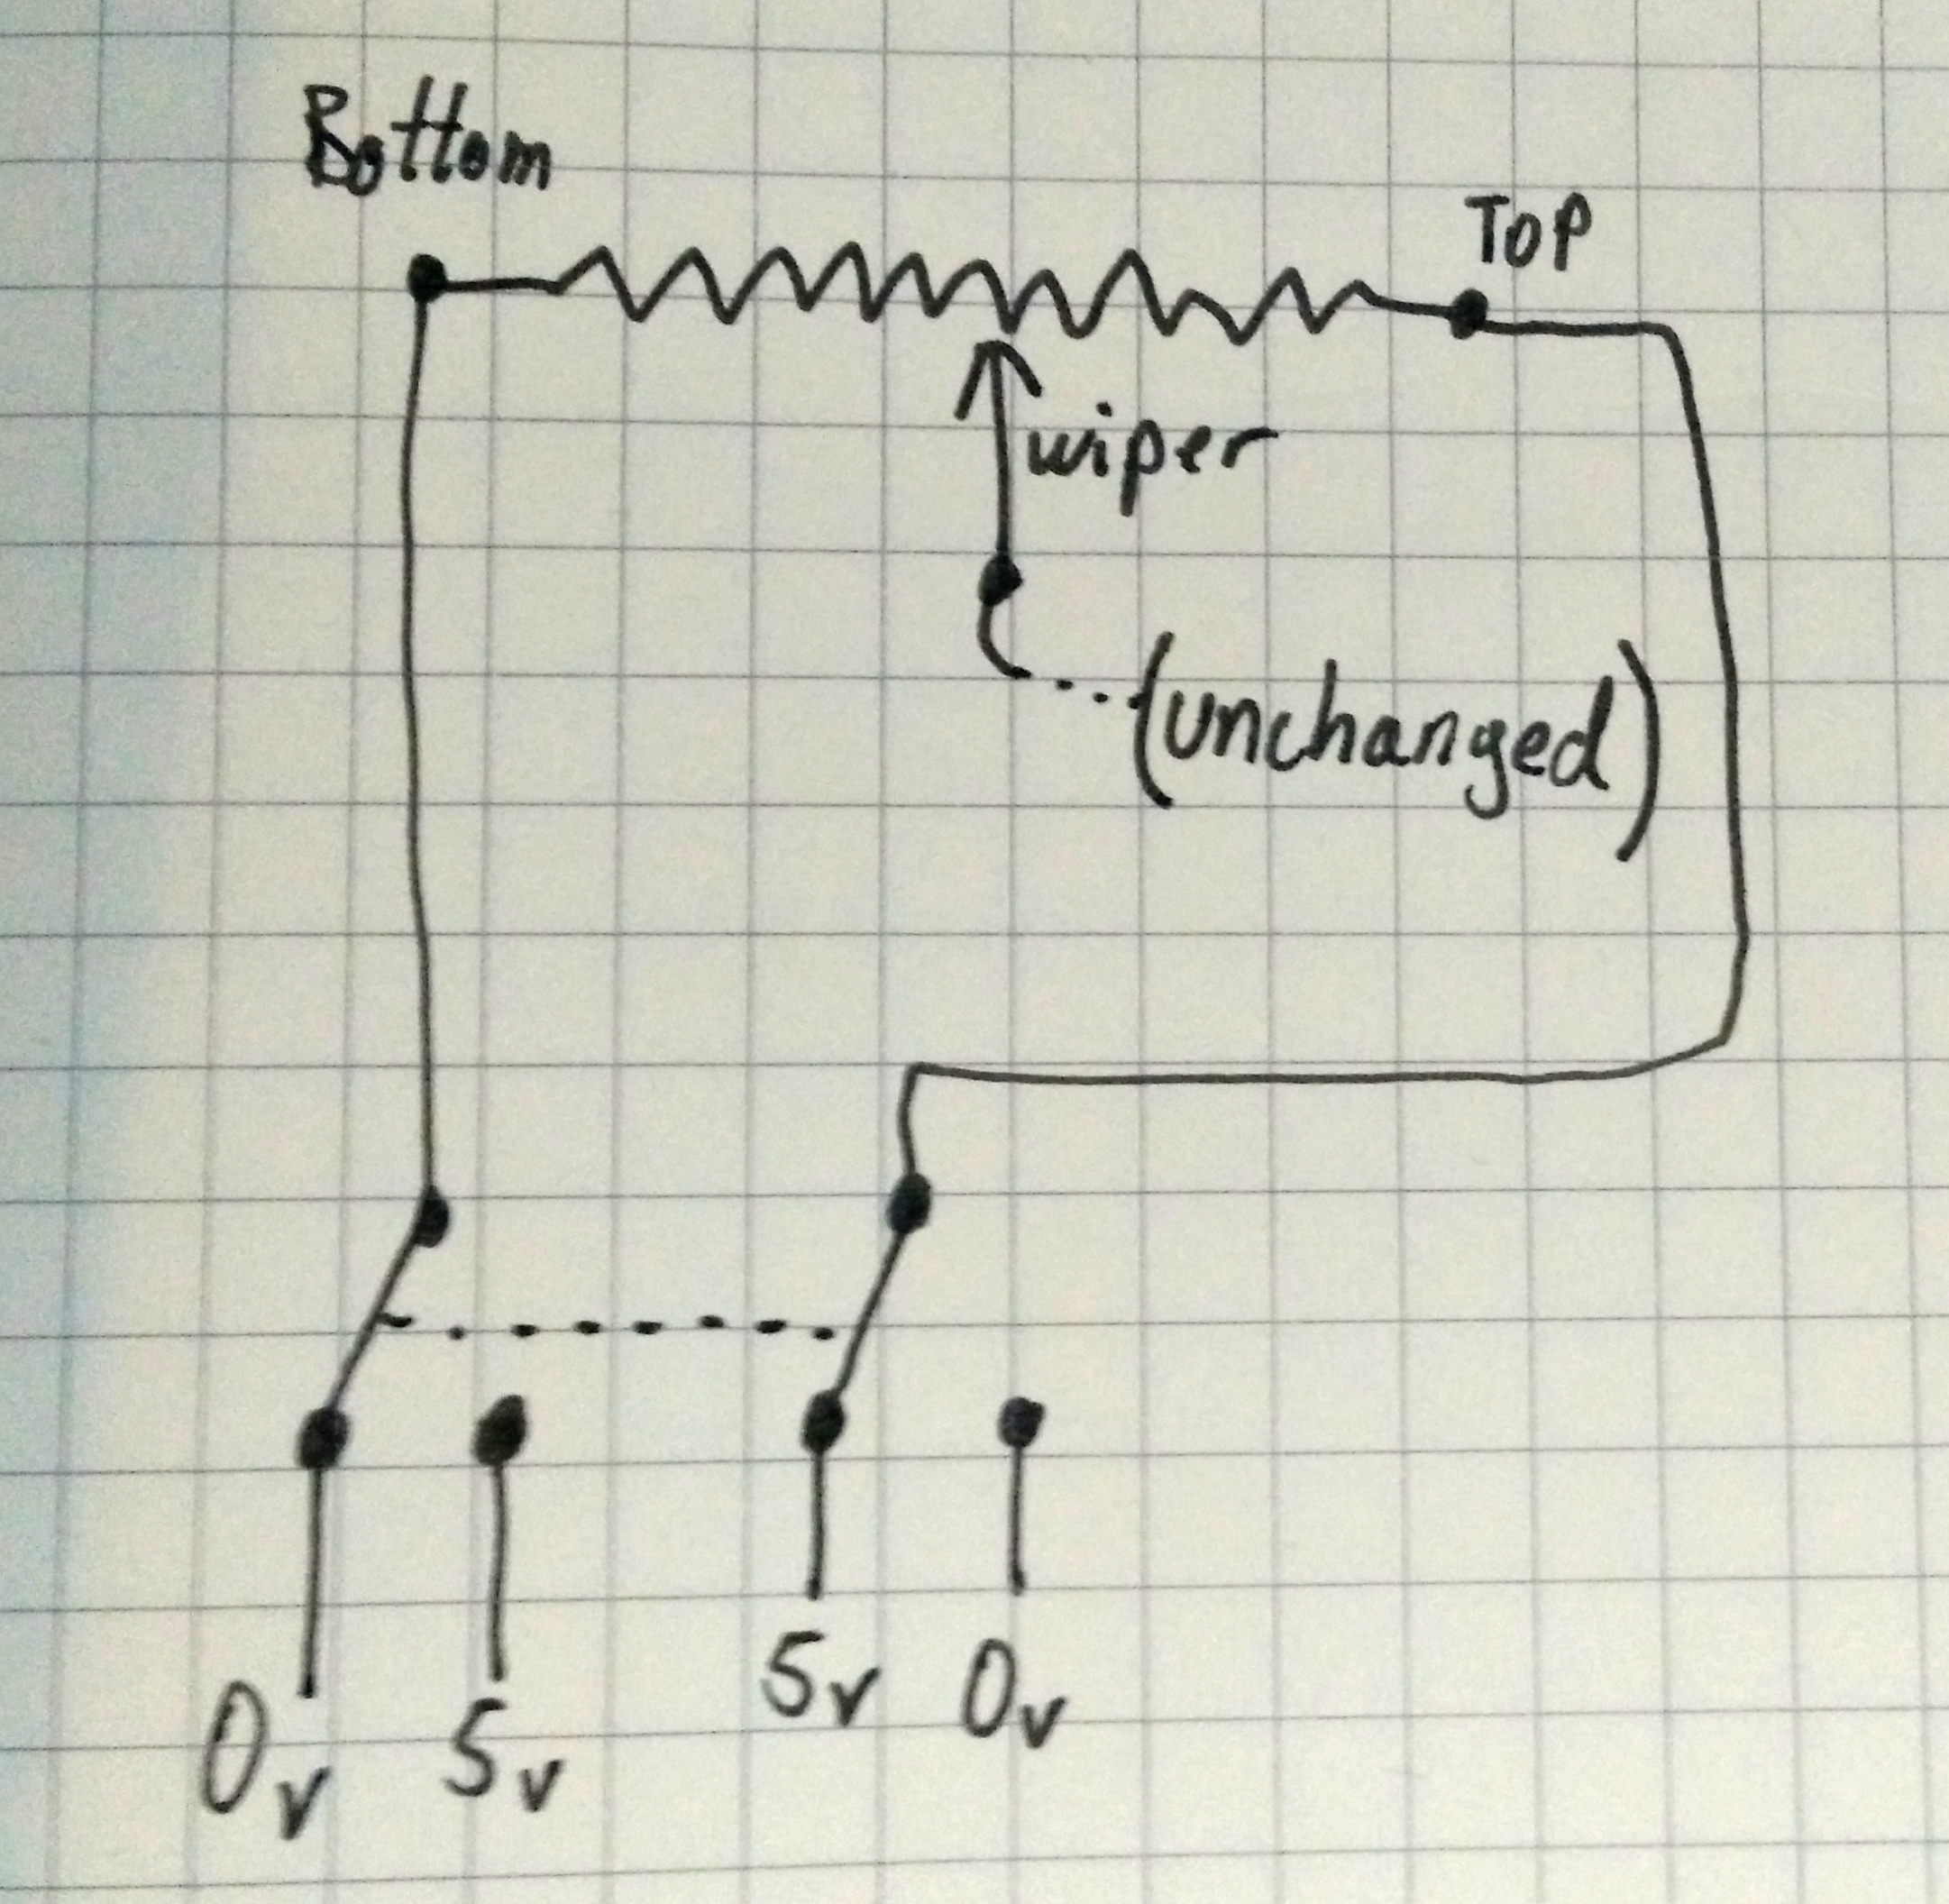 Bottom
Top
wiper
(unchanged)
0v 5v 5v 0v